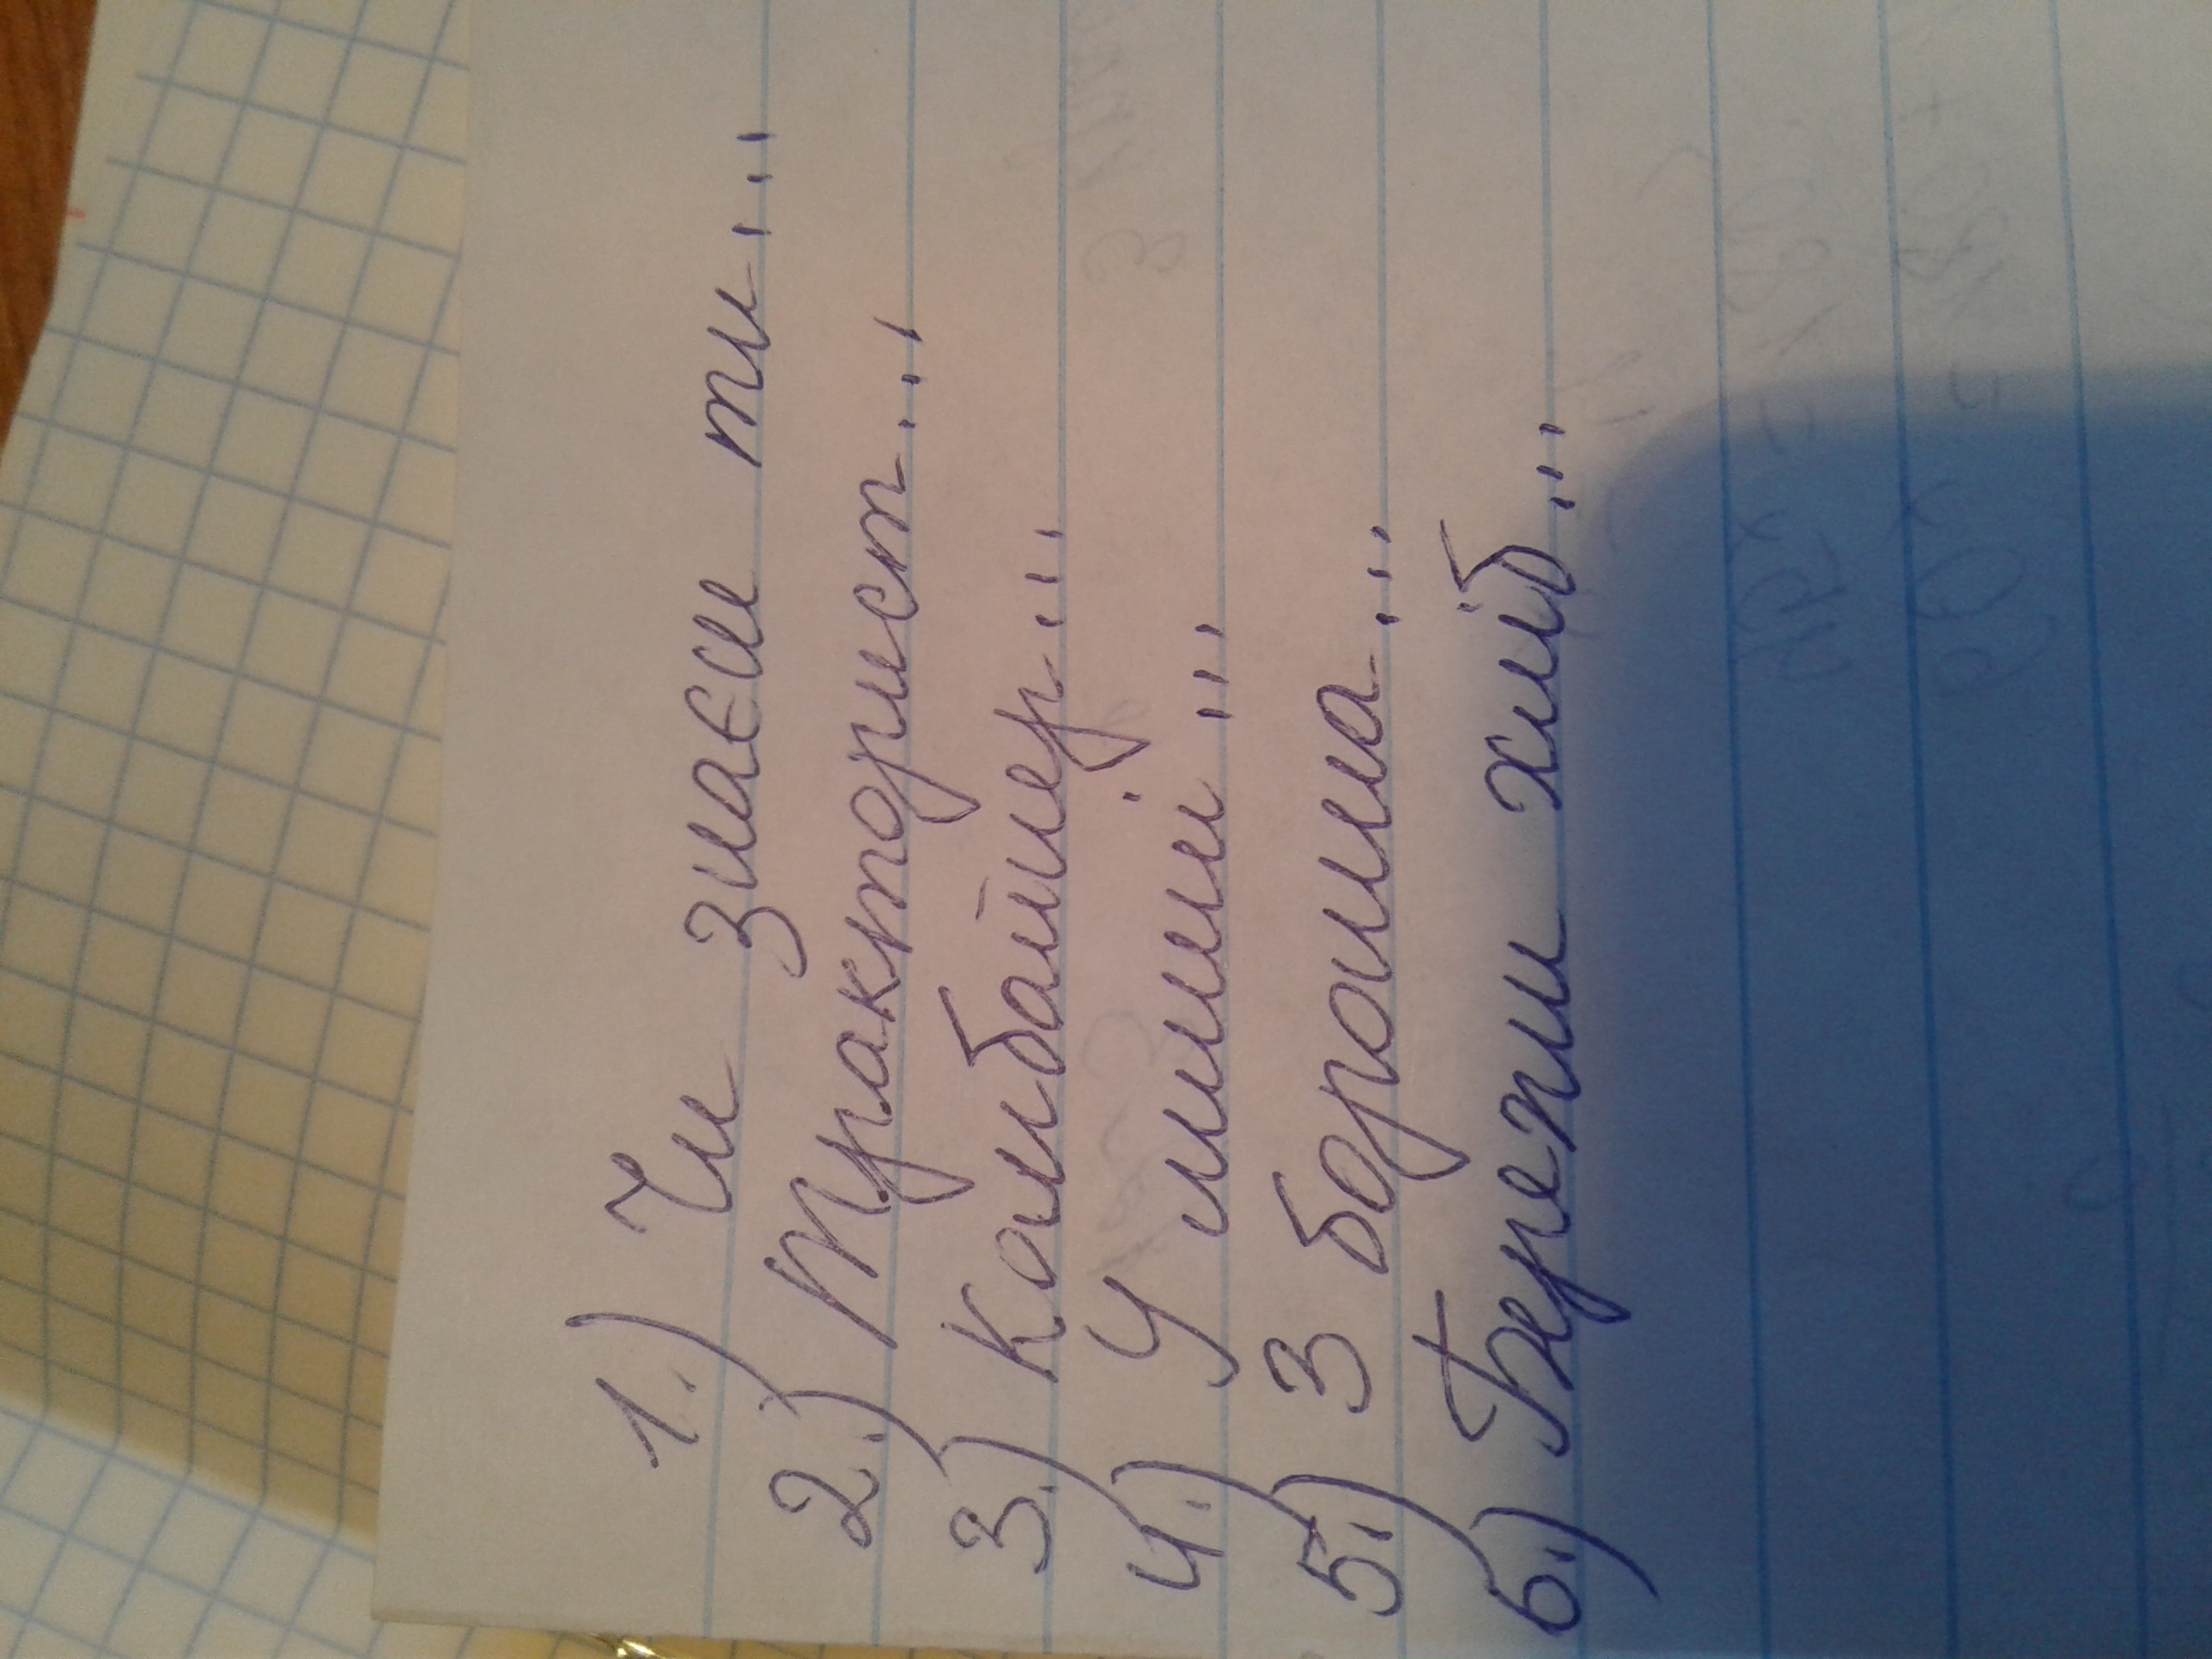 1.) Чи знаєш ти...
2.) Тракторист...
3.) Комбайнер...
4.) У млині...
5.) З борошна...
6.) Берегти хліб...